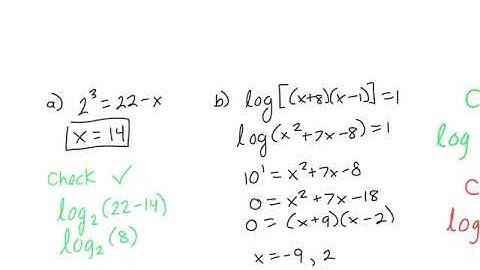 a) 2³ = 22 - x
x = 14
Check ✓
log₂(22-14)
log₂(8)
b) log[(x+8)(x-1)] = 1
log(x² + 7x - 8) = 1
10¹ = x² + 7x - 8
0 = x² + 7x - 18
0 = (x+9)(x-2)
x = -9, 2
C
log
C
log